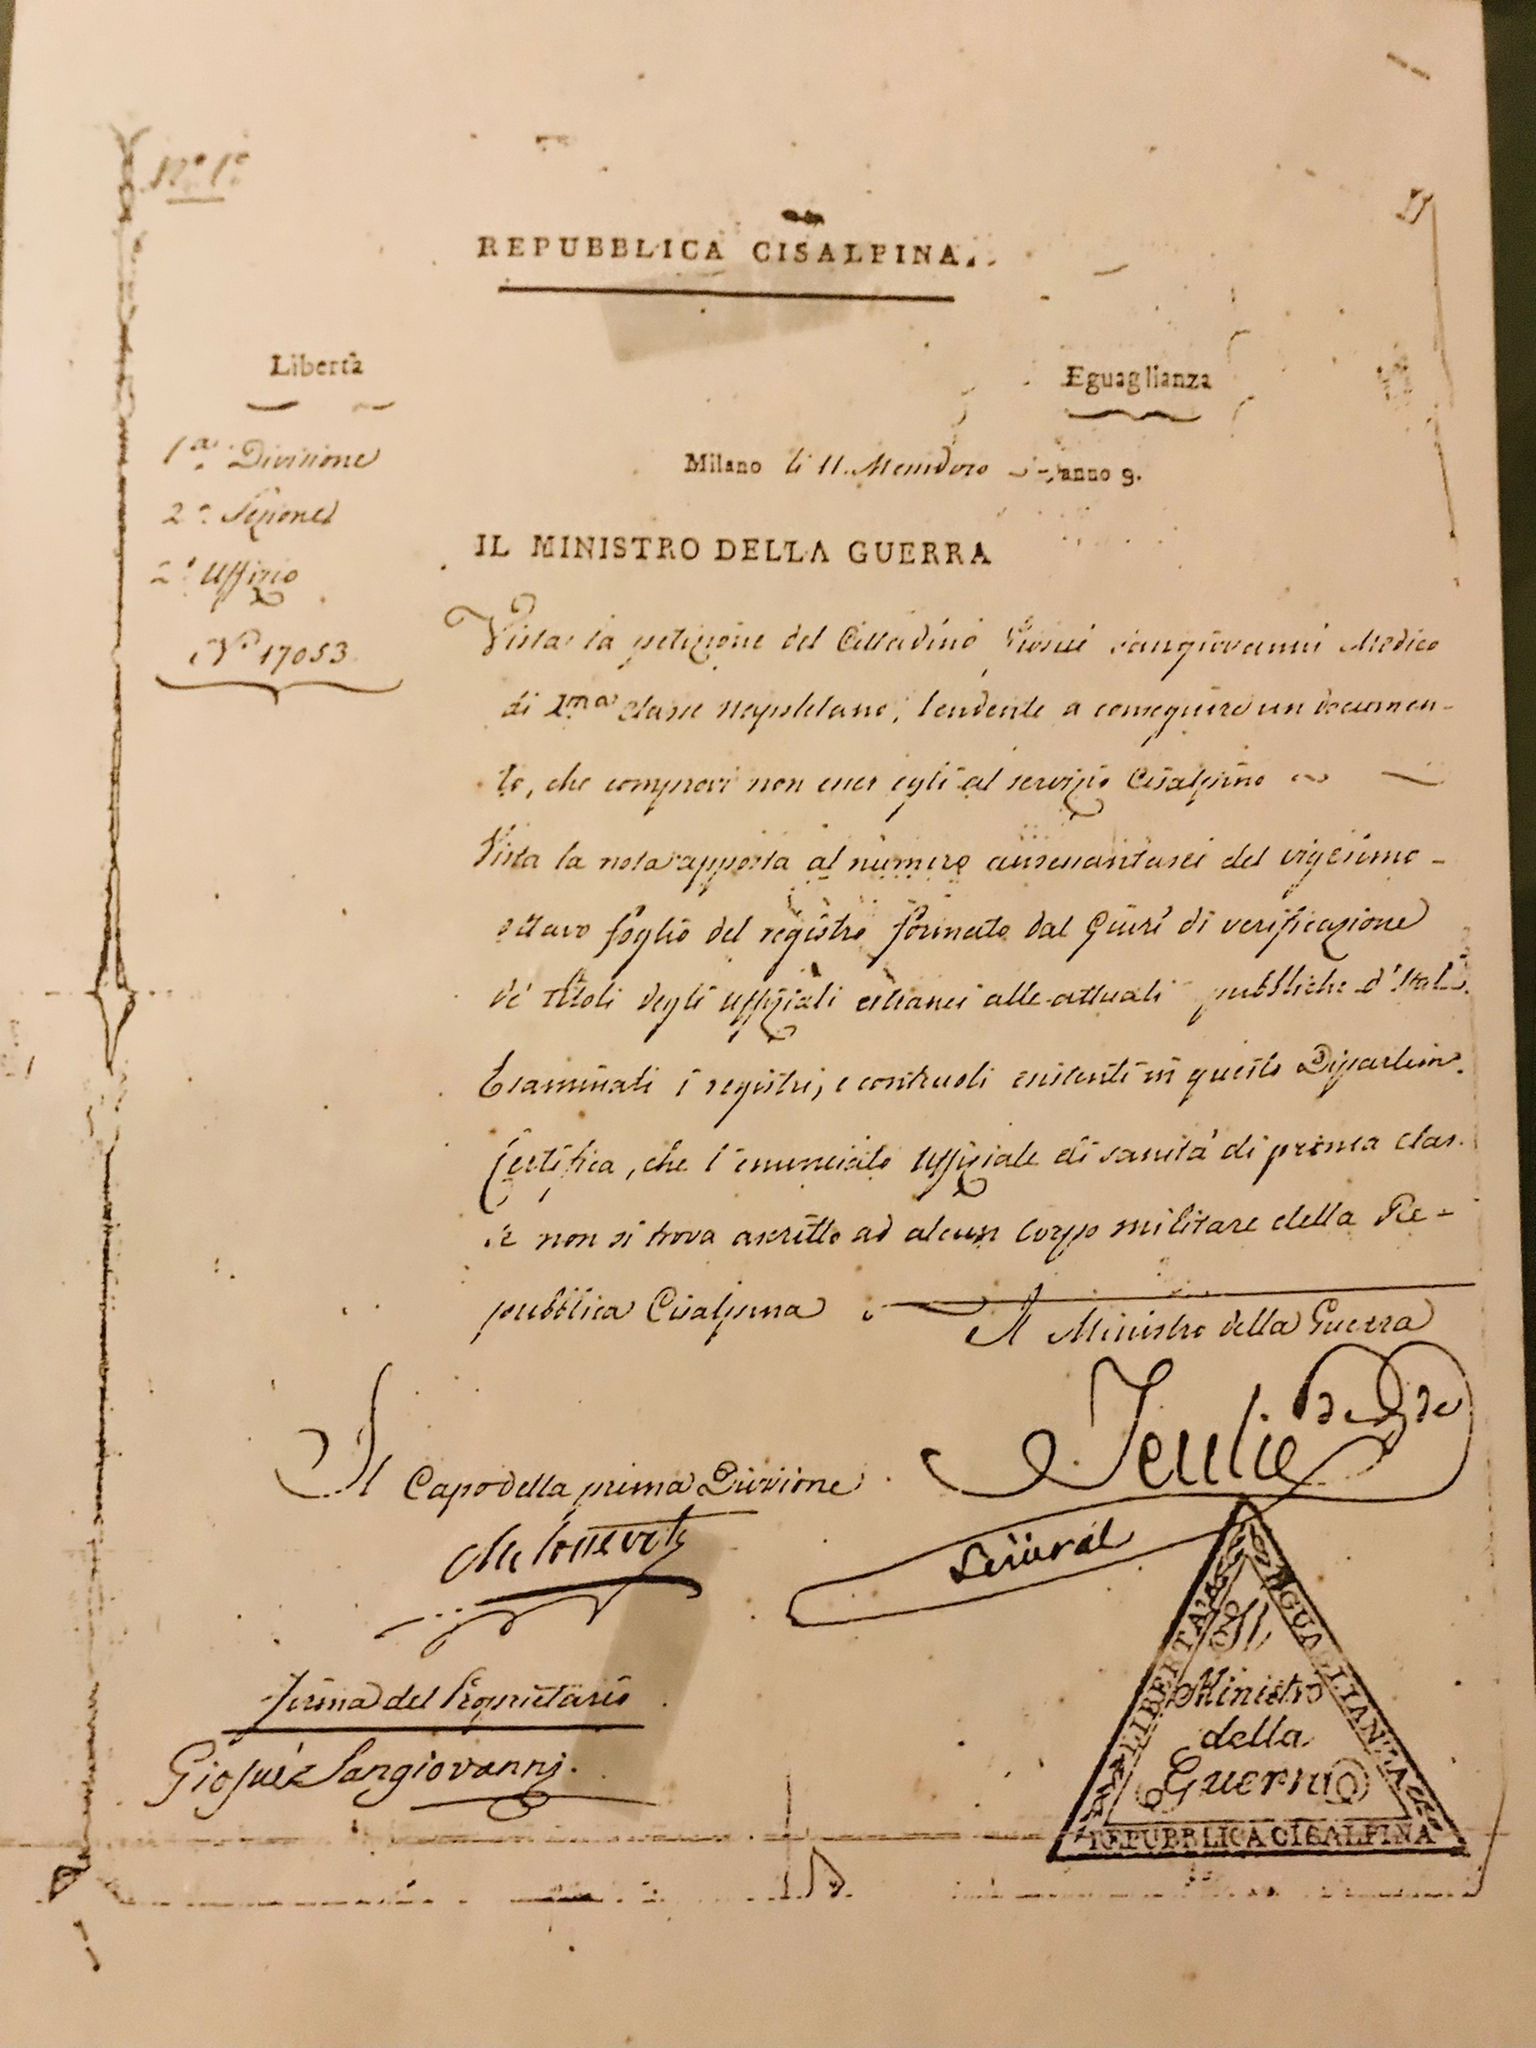 N.° 1.°
REPUBBLICA CISALPINA.
Libertà
Eguaglianza
1.a Divisione
2.a Sezione
2.° Uffizio
N.° 17053
Milano li 11. Messidoro anno 9.
IL MINISTRO DELLA GUERRA
Vista la petizione del Cittadino Giosuè Sangiovanni Medico
di 1.ma classe napoletano, tendente a conseguire un documen-
to, che comprovi non esser egli al servizio Cisalpino
Vista la nota apposta al numero del vigesimo-
ottavo foglio del registro formato dal Giurì di verificazione
de' titoli degli uffiziali estranei alle attuali pubbliche d'Ital.
Esaminati i registri, e controlli esistenti in questo Dipartim.
Certifica, che l'enunciato Uffiziale di sanità di prima clas-
se non si trova ascritto ad alcun Corpo militare della Re-
pubblica Cisalpina
Il Ministro della Guerra
Teulié
Il Capo della prima Divisione
Firma del Proprietario
Giosuè Sangiovanni.
LIBERTÀ
EGUAGLIANZA
Il
Ministro
della
Guerra
REPUBBLICA CISALPINA